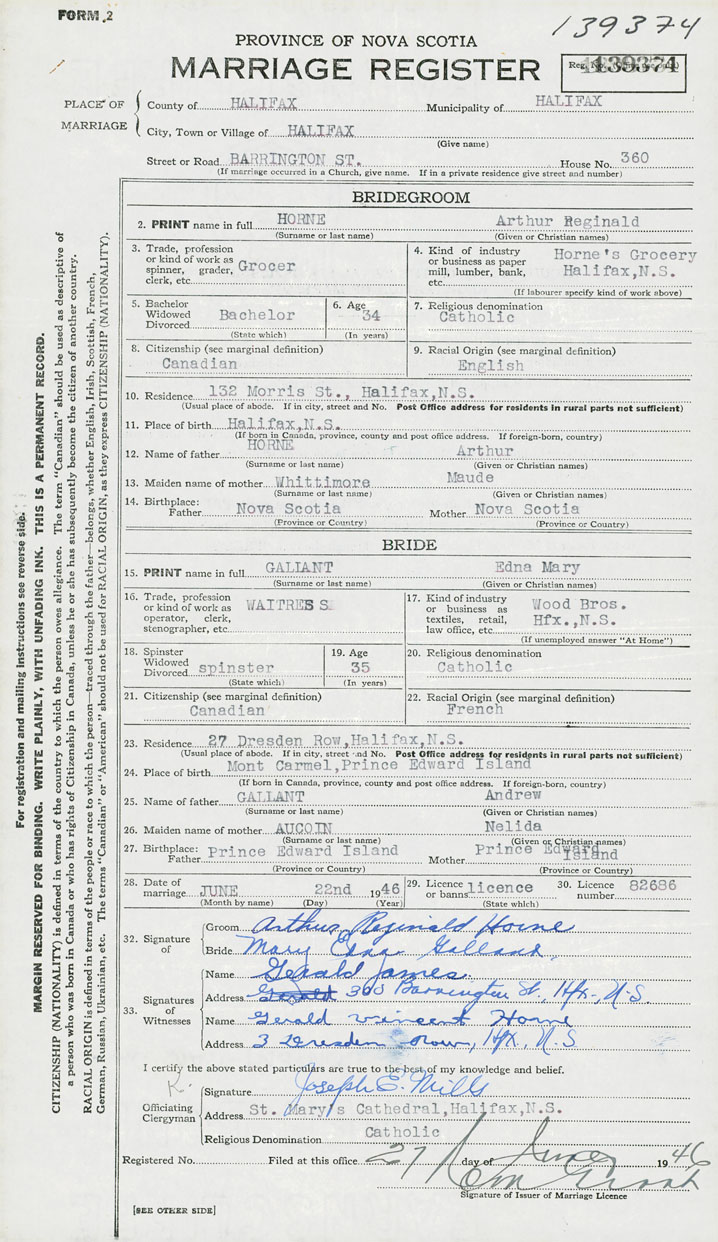 FORM 2
139374
PROVINCE OF NOVA SCOTIA
MARRIAGE REGISTER
139374
PLACE OF MARRIAGE
County of HALIFAX Municipality of HALIFAX
City, Town or Village of HALIFAX
(Give name)
Street or Road BARRINGTON ST. House No. 360
(If marriage occurred in a Church, give name. If in a private residence give street and number)
BRIDEGROOM
2. PRINT name in full HORNE Arthur Reginald
(Surname or last name) (Given or Christian names)
3. Trade, profession or kind of work as spinner, grader, clerk, etc. Grocer
4. Kind of industry or business as paper mill, lumber, bank, etc. Horne's Grocery Halifax,N.S.
(If labourer specify kind of work above)
5. Bachelor Widowed Divorced Bachelor
(State which)
6. Age 34
(In years)
7. Religious denomination
Catholic
8. Citizenship (see marginal definition)
Canadian
9. Racial Origin (see marginal definition)
English
10. Residence 132 Morris St., Halifax,N.S.
(Usual place of abode. If in city, street and No. Post Office address for residents in rural parts not sufficient)
11. Place of birth Halifax,N.S.
(If born in Canada, province, county and post office address. If foreign-born, country)
12. Name of father HORNE Arthur
(Surname or last name) (Given or Christian names)
13. Maiden name of mother Whittimore Maude
(Surname or last name) (Given or Christian names)
14. Birthplace:
Father Nova Scotia Mother Nova Scotia
(Province or Country) (Province or Country)
BRIDE
15. PRINT name in full GALIANT Edna Mary
(Surname or last name) (Given or Christian names)
16. Trade, profession or kind of work as operator, clerk, stenographer, etc. WAITRESS
17. Kind of industry or business as textiles, retail, law office, etc. Wood Bros. Hfx.,N.S.
(If unemployed answer "At Home")
18. Spinster Widowed Divorced spinster
(State which)
19. Age 35
(In years)
20. Religious denomination
Catholic
21. Citizenship (see marginal definition)
Canadian
22. Racial Origin (see marginal definition)
French
23. Residence 27 Dresden Row,Halifax,N.S.
(Usual place of abode. If in city, street and No. Post Office address for residents in rural parts not sufficient)
24. Place of birth Mont Carmel,Prince Edward Island
(If born in Canada, province, county and post office address. If foreign-born, country)
25. Name of father GALLANT Andrew
(Surname or last name) (Given or Christian names)
26. Maiden name of mother AUCOIN Nelida
(Surname or last name) (Given or Christian names)
27. Birthplace:
Father Prince Edward Island Mother Prince Edward Island
(Province or Country) (Province or Country)
28. Date of marriage JUNE 22nd 1946
(Month by name) (Day) (Year)
29. Licence or banns licence
(State which)
30. Licence number 82686
32. Signature of
Groom Arthur Reginald Horne
Bride Mary Edna Gallant
33. Signatures of Witnesses
Name Gerald James
Address 360 Barrington St., Hfx., N.S.
Name Gerald Vincent Horne
Address 3 Dresden Row, Hfx, N.S
I certify the above stated particulars are true to the best of my knowledge and belief.
Officiating Clergyman
Signature Joseph E. Mills
Address St. Mary's Cathedral,Halifax,N.S.
Religious Denomination Catholic
Registered No. Filed at this office 27 day of June 1946
Signature of Issuer of Marriage Licence
[SEE OTHER SIDE]
For registration and mailing instructions see reverse side.
MARGIN RESERVED FOR BINDING. WRITE PLAINLY, WITH UNFADING INK. THIS IS A PERMANENT RECORD.
CITIZENSHIP (NATIONALITY) is defined in terms of the country to which the person owes allegiance. The term "Canadian" should be used as descriptive of
a person who was born in Canada or who has rights of Citizenship in Canada, unless he or she has subsequently become the citizen of another country.
RACIAL ORIGIN is defined in terms of the people or race to which the person—traced through the father—belongs, whether English, Irish, Scottish, French,
German, Russian, Ukrainian, etc. The terms "Canadian" or "American" should not be used for RACIAL ORIGIN, as they express CITIZENSHIP (NATIONALITY).